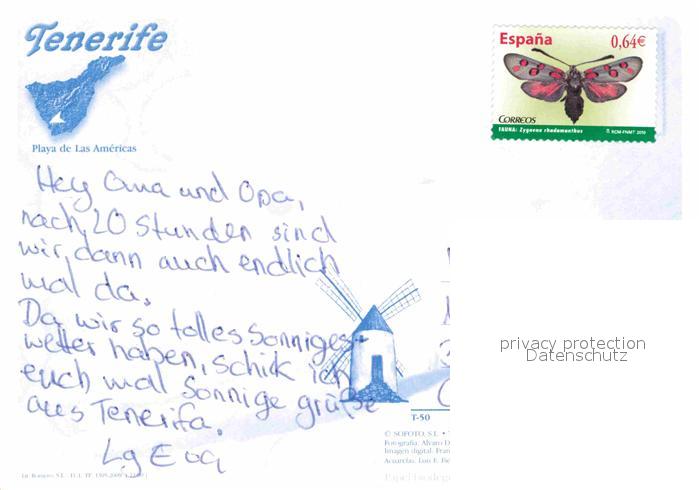 Tenerife
Playa de Las Américas
España 0,64€
CORREOS
FAUNA: Zygaena rhadamanthus
RCM-FNMT 2010
Hey Oma und Opa,
nach 20 Stunden sind
wir dann auch endlich
mal da.
Da wir so tolles Sonniges-
wetter haben, schik ich
euch mal Sonnige grüße
aus Tenerifa.
Lg Eva
privacy protection
Datenschutz
T-50
© SOFOTO, S.L.
Fotografía: Alvaro D
Imagen digital: Fran
Acuarelas: Luis E. Fe
Papel biodeg